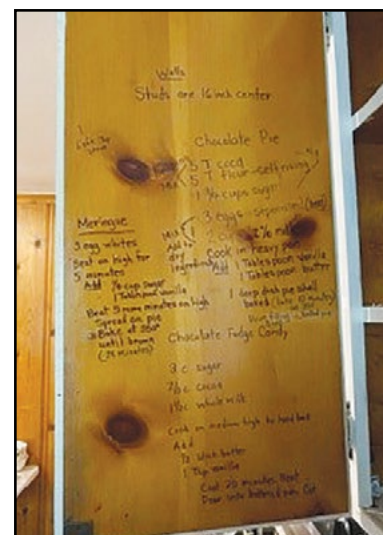 Walls
Studs are 16 inch center
Chocolate Pie
5 T coco
5 T flour - self rising
Mix
1 3/4 cups sugar
3 eggs - seperated
2% milk
Mix
Add to
dry
ingredients
Cook in heavy pan
Add 1 Tablespoon vanilla
1 Tablespoon butter
1 deep dish pie shell
baked
Meringue
3 egg whites
Beat on high for
5 minutes
Add cup sugar
1 Tablespoon vanilla
Beat 5 more minutes on high
Spread on pie
Bake at 350°
until brown
Chocolate Fudge Candy
3 c. sugar
cocoa
whole milk
Cook on medium high to hard ball
Add
stick butter
1 Tsp vanilla
Cool 20 minutes Beat
Pour into buttered pan Cut